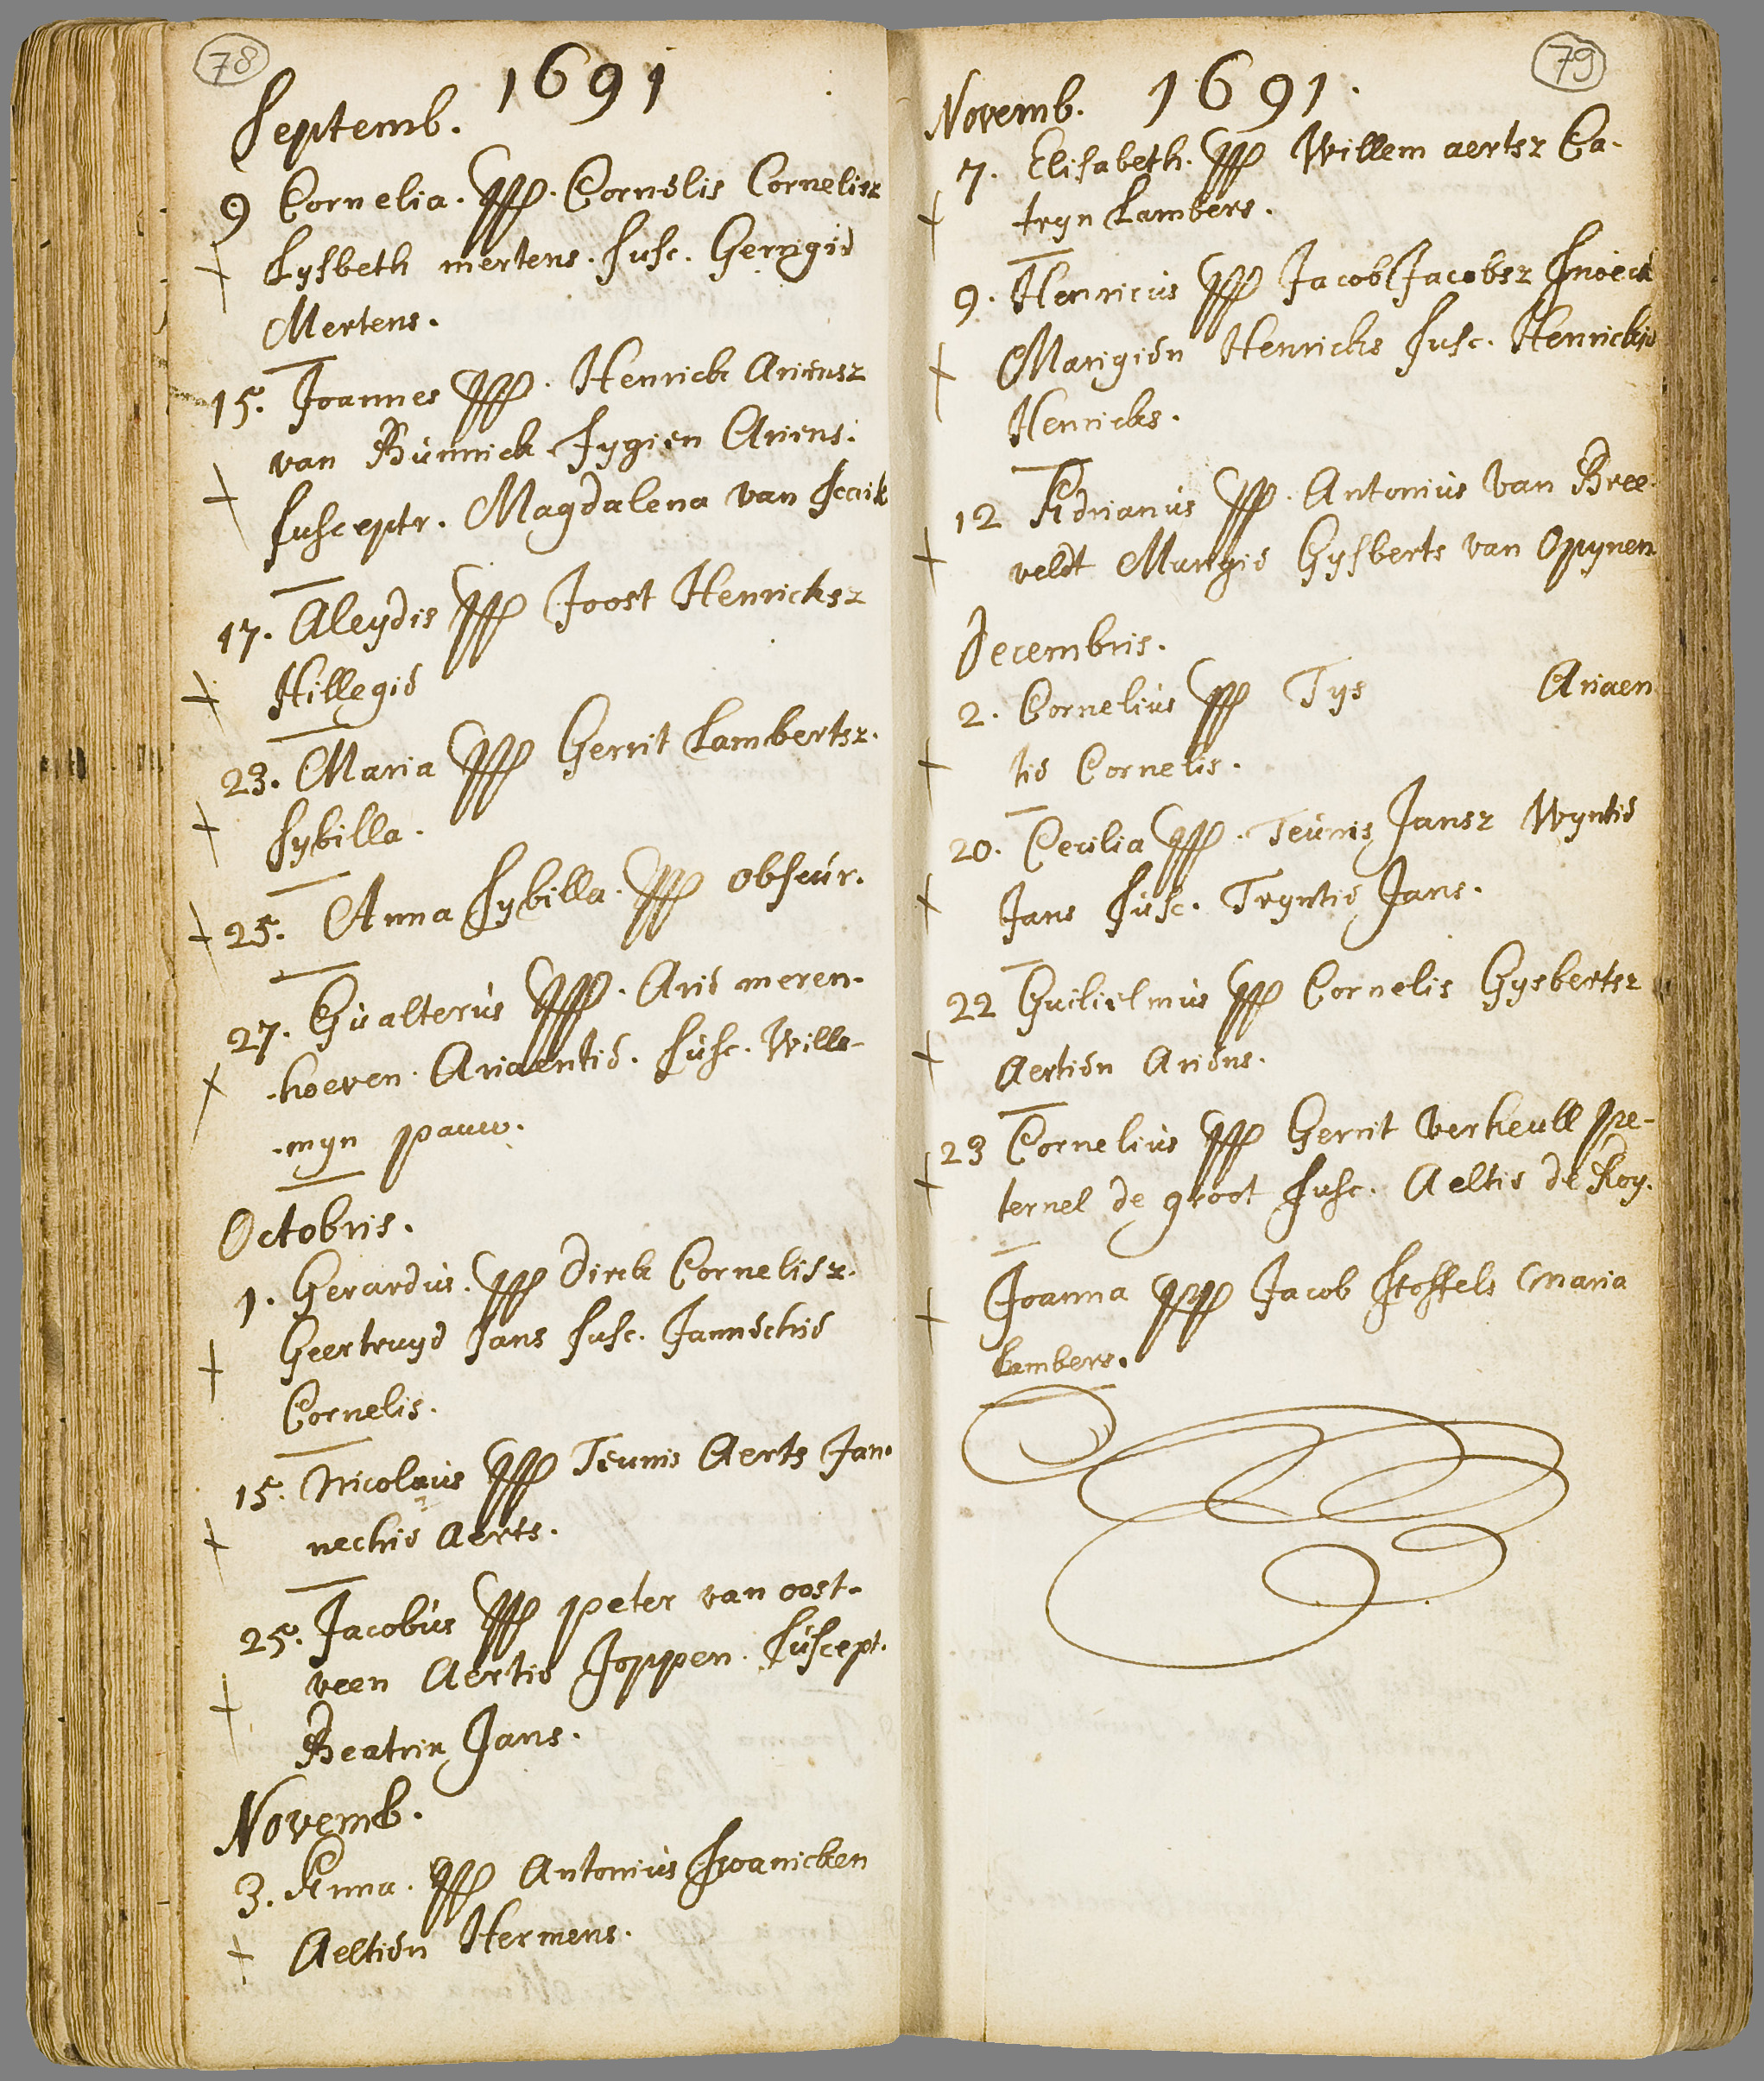 78
1691
Septemb.
9 Cornelia. Pp. Cornelis Cornelisz
Lysbeth mertens. susc. Gerrigie
Mertens.
15. Joannes Pp. Henrick Ariensz
van Bunnick Fygien Ariens.
susceptr. Magdalena van
17. Aleydis Pp Joost Henricksz
Hillegie
23. Maria Pp Gerrit Lambertsz.
Sybilla.
25. Anna Sybilla. Pp obscur.
27. Gualterus Pp. Arie meren-
-hoeven. Ariaentie. susc. Wille-
-myn pauw.
Octobris.
1. Gerardus. Pp Dirck Cornelisz.
Geertruyd Jans susc. Jannechie
Cornelis.
15. Nicolaus Pp Teunis Aerts Jan-
nechie Aerts.
25. Jacobus Pp peter van oost-
veen Aertie Joppen. suscept.
Beatrix Jans.
Novemb.
3. Anna. Pp Antonius
Aeltien Hermens.
79
Novemb. 1691.
7. Elisabeth. Pp Willem aertsz Ca-
tryn Lambers.
9. Henricus Pp Jacob Jacobsz Snoeck
Marigien Henricks susc. Henrickie
Henricks.
12 Adrianus Pp. Antonius van Bree-
veldt Marigie Gysberts van Opynen
Decembris.
2. Cornelius Pp Tys Ariaen
tie Cornelis.
20. Cecilia Pp. Teunis Jansz Wyntie
Jans susc. Tryntie Jans.
22 Guilielmus Pp Cornelis Gysbertsz
Aertien Ariens.
23 Cornelius Pp Gerrit verheull pe-
ternel de groot susc. Aeltie de Roy.
Joanna Pp Jacob Stoffels Maria
Lambers.